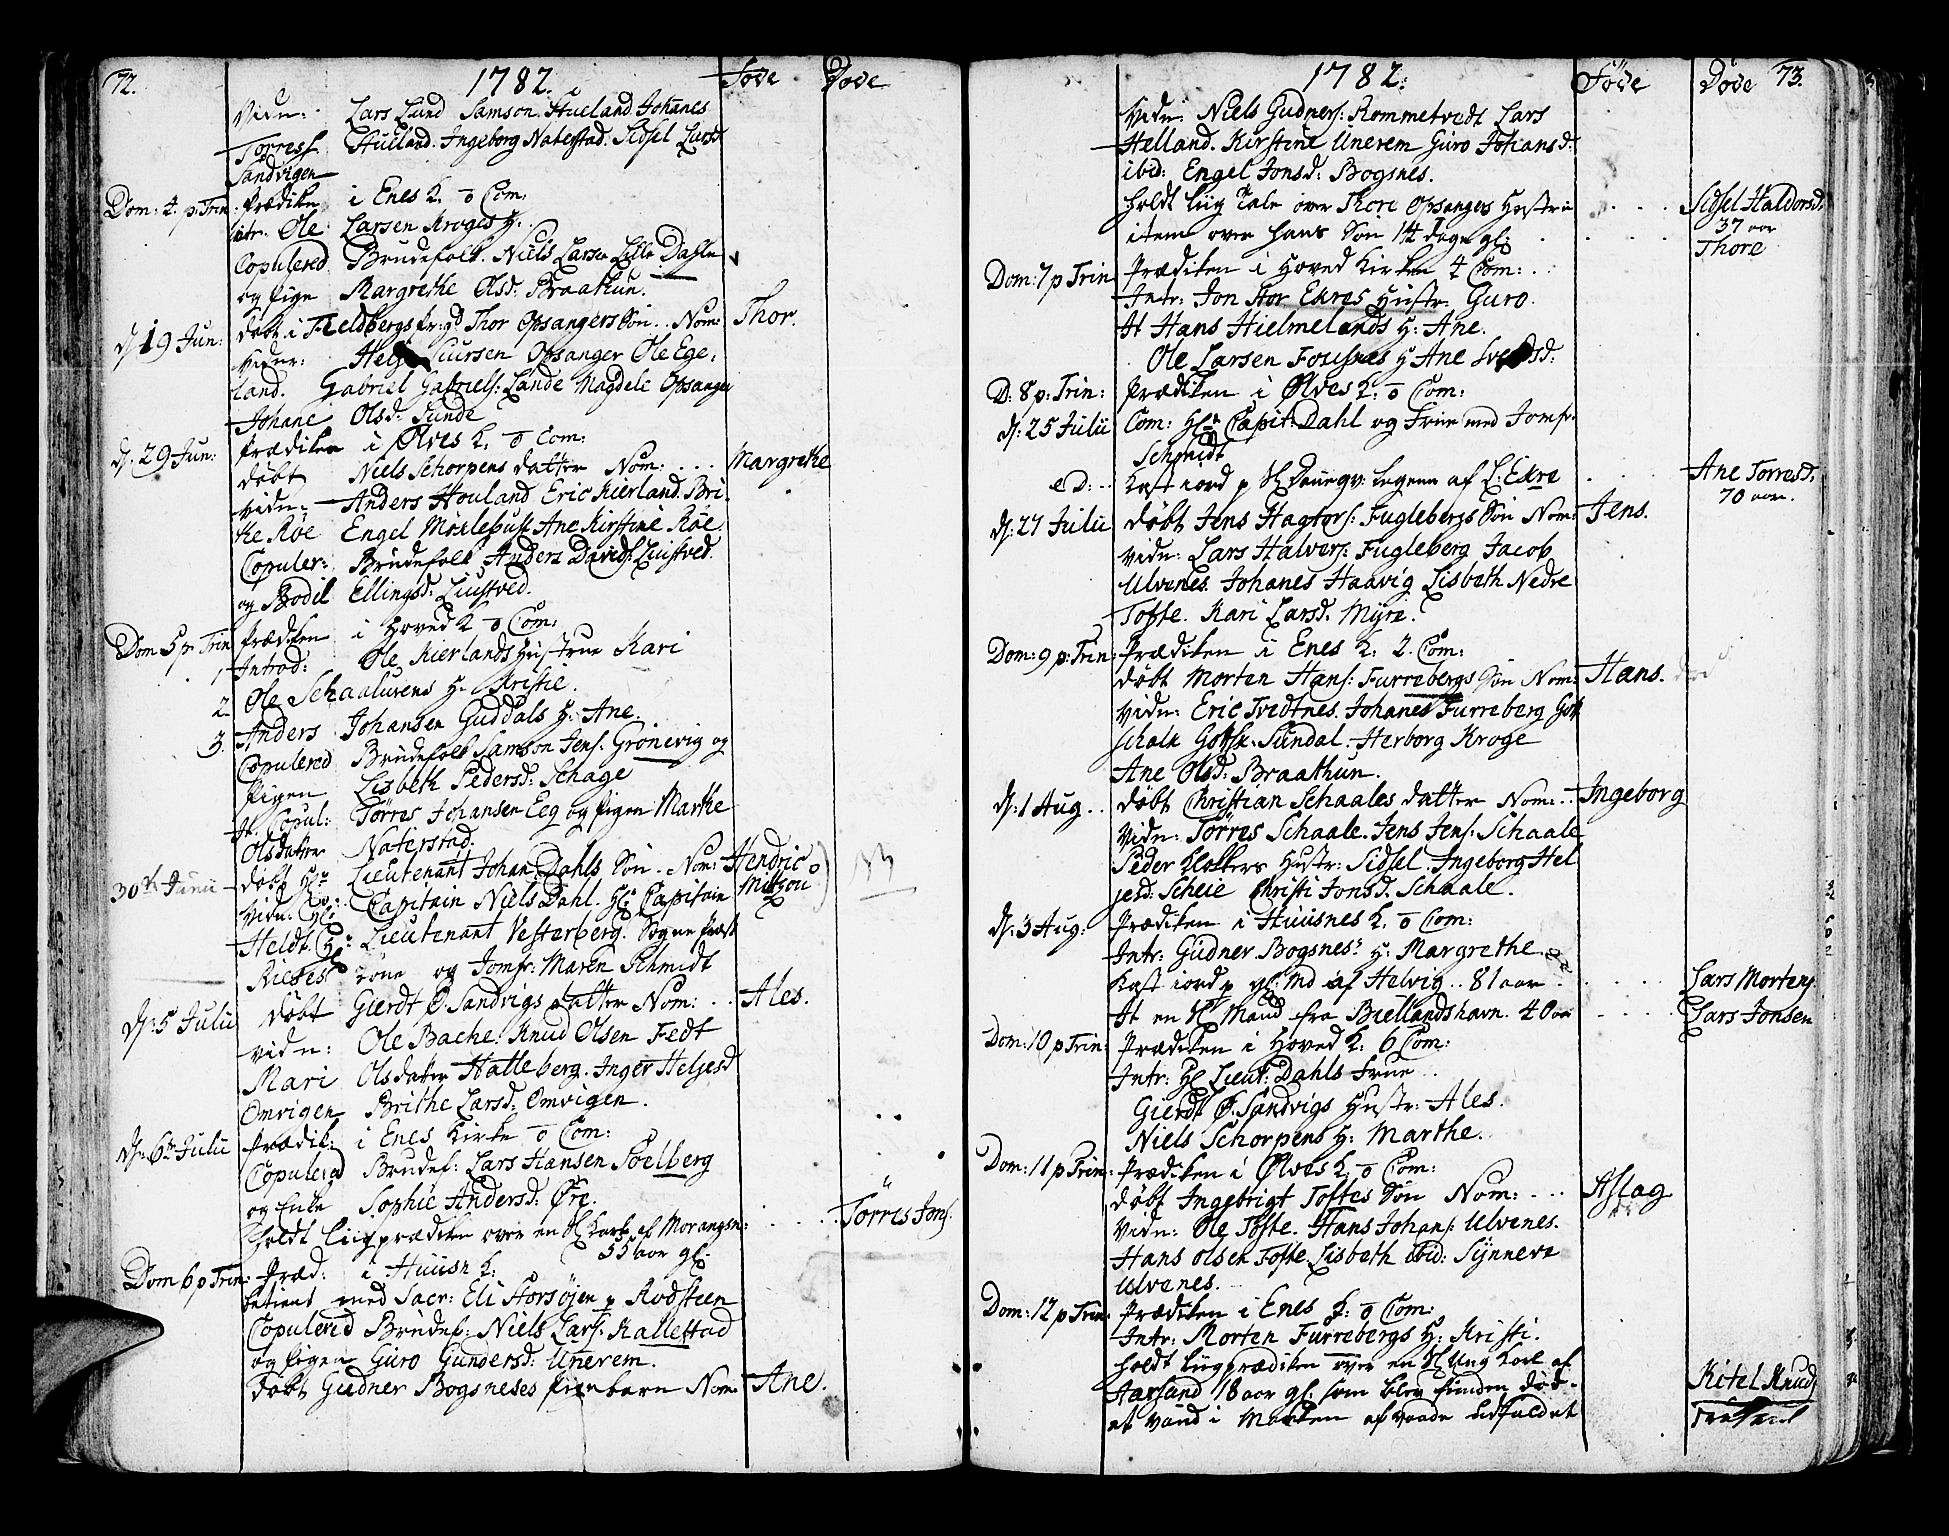 72. 1782. Føde Døde
Vidn: Lars Lund Samson Hueland Johanes
Torress Hueland. Ingeborg Naterstad. Sidsel Larsd
Sandvigen
Dom: 4. p: Trin Prædiken i Enes K. 0 Com:
intr. Ole Larsen Kroges H.
Copulered Brudefolk. Niels Larsen Lille Dahle
og pige Margrethe Olsd: Braathun.
d: 19 Jun: døbt i Thor Opsangers Søn. Nom: Thor.
Vidner: Siursen Opsanger Ole Ege:
land. Gabriel Gabriels: Lande Magdele Opsanger
Johane Olsd: Sunde
d. 29 Jun: Prædiken i Ølves K. 0 Com:
døbt Niels Schorpens datter Nom: . . . Margrethe
vidn: Anders Houland Eric Kierland. Bri:
the Røe Engel Møxlepust Ane Kirstine Røe
Copuler: Brudefolk Anders Davids: Liustved.
og Bodil Ellingsd: Liustved.
Dom 5 p: Trin Prædiken i Hoved K 0 Com:
1 Introd: Ole Kierlands Hustrue Kari
2. Ole Schaalurens H. Kristie.
3. Anders Johansen Guddals H: Ane.
Copulered Brudefolk Samson Jens: Gronevig og
pigen Lisbeth Pedersd: Schage
It. Copul: Tørres Johansen Eeg og pigen Marthe
Olsdatter Naterstad.
30th Junii døbt Hr Lieutenant Johan Dahls Søn. Nom: Hendric
Vidn: Hr: Capitain Niels Dahl. Hr. Capitain Mitzou
Heldt. Hr: Lieutenant Vesterberg.
kone og Jomfr: Maren Schmidt
d: 5 Julii døbt Gierdt Ø. Sandvigs datter Nom: . . Ales.
vidn: Ole Bache. Knud Olsen Fedt
Mari Olsdatter Hatleberg. Inger Heljesd
Omvigen Brithe Larsd: Omvigen.
d: 6te Julii Prædik: i Enes Kirke 0 Com:
Copulered Brudef: Lars Hansen Soelberg
og Enke Sophie Andersd: Øre.
holdt Liigprædiken over en af Morangsn: . . . Törres Jons.
55 aar gl.
Dom 6 p Trin: Præd: i Huusn K.
betient med Sacr: Eli Storsøjen p Rodsteen
Copulered Brudef: Niels Lars: Kallestad
og pigen Guro Gundersd: Unerem.
døbt Gudner Bogsneses pigebarn Nom. Ane.
1782: Föde Döde 73.
Vidn: Niels Gudners: Rommetvedt Lars
Helland. Kirstine Unerem Guro Johansd:
ibid: Engel Jonsd: Bogsnes.
holdt liig Tale over Thore Opsangers Hustru . . . Sidsel Haldorsd:
37 aar
item over hans Søn 14 dage gl: . . . Thore
Dom: 7 p Trin Prædiken i Hoved Kirken 4 Com: . .
Intr: Jon Stor Ekres Hustr: Guro.
It Hans Hielmelands H: Ane.
Ole Larsen Fousnes H Ane
D: 8 p: Trin: Prædiken i Ølves K. 0 Com:
d: 25 Julii Com: Hr: Capit: Dahl og Frue med Jomfr:
Schmidt
e D: Kast iord p af L: Ekre . . . Ane Torresd:
70 aar.
d: 27 Julii Døbt Jens Hagtors: Fuglebergs Søn Nom: Jens.
vidn: Lars Halvors: Fugleberg Jacob
Ulvenes. Johanes Haavig Lisbeth Nedre
Tofte. Kari Larsd. Myre.
Dom: 9 p: Trin: Prædiken i Enes K. 2. Com:
døbt Morten Hans: Furrebergs Søn Nom: Hans.
vidn: Eric Tvedtnes. Johanes Furreberg Got
schalk Gotsk: Sundal. Herborg Kroge
Ane Olsd: Braathun.
d: 1 Aug . . døbt Christian Schaales datter Nom: . . Ingeborg
Vidn: Tørres Schaale. Jens Jens: Schaale
Peder Klokkers Hustr: Sidsel. Ingeborg Hel
jesd: Scheie Christi Jonsd. Schaale.
d: 3 Aug: Prædiken i Huusnes K. 0 Com:
Intr: Gudner Bogsnes: H: Margrethe.
Kast iord p gl: Md af Helvig . . 81 aar . . . Lars Mortens
It en Mand fra Biellandshavn. 40 aar . . . Lars Jonsen
Dom: 10 p Trin: Prædiken i Hoved K: 6 Com:
Intr: Hr Lieut: Dahls Frue . .
Gierdt Ø. Sandvigs Hustr: Ales.
Niels Schorpens H: Marthe.
Dom: 11 p Trin: Prædiken i Ølves K. 0 Com:
døbt Ingebrigt Toftes Søn Nom: . . . Aslag
Vidn: Ole Tofte. Hans Johans: Ulvenes.
Hans Olsen Tofte. Lisbeth ibid: Synneve
Ulvenes.
Dom: 12 p Trin: Prædiken i Enes K: 0 Com:
Intr: Morten Furrebergs H: Kristi.
holdt Liigprædiken over en Ung Karl af
Aarsand 18 aar gl: som blev funden død . Kitel Knuds
at vand i Marken af vaade udfaldet